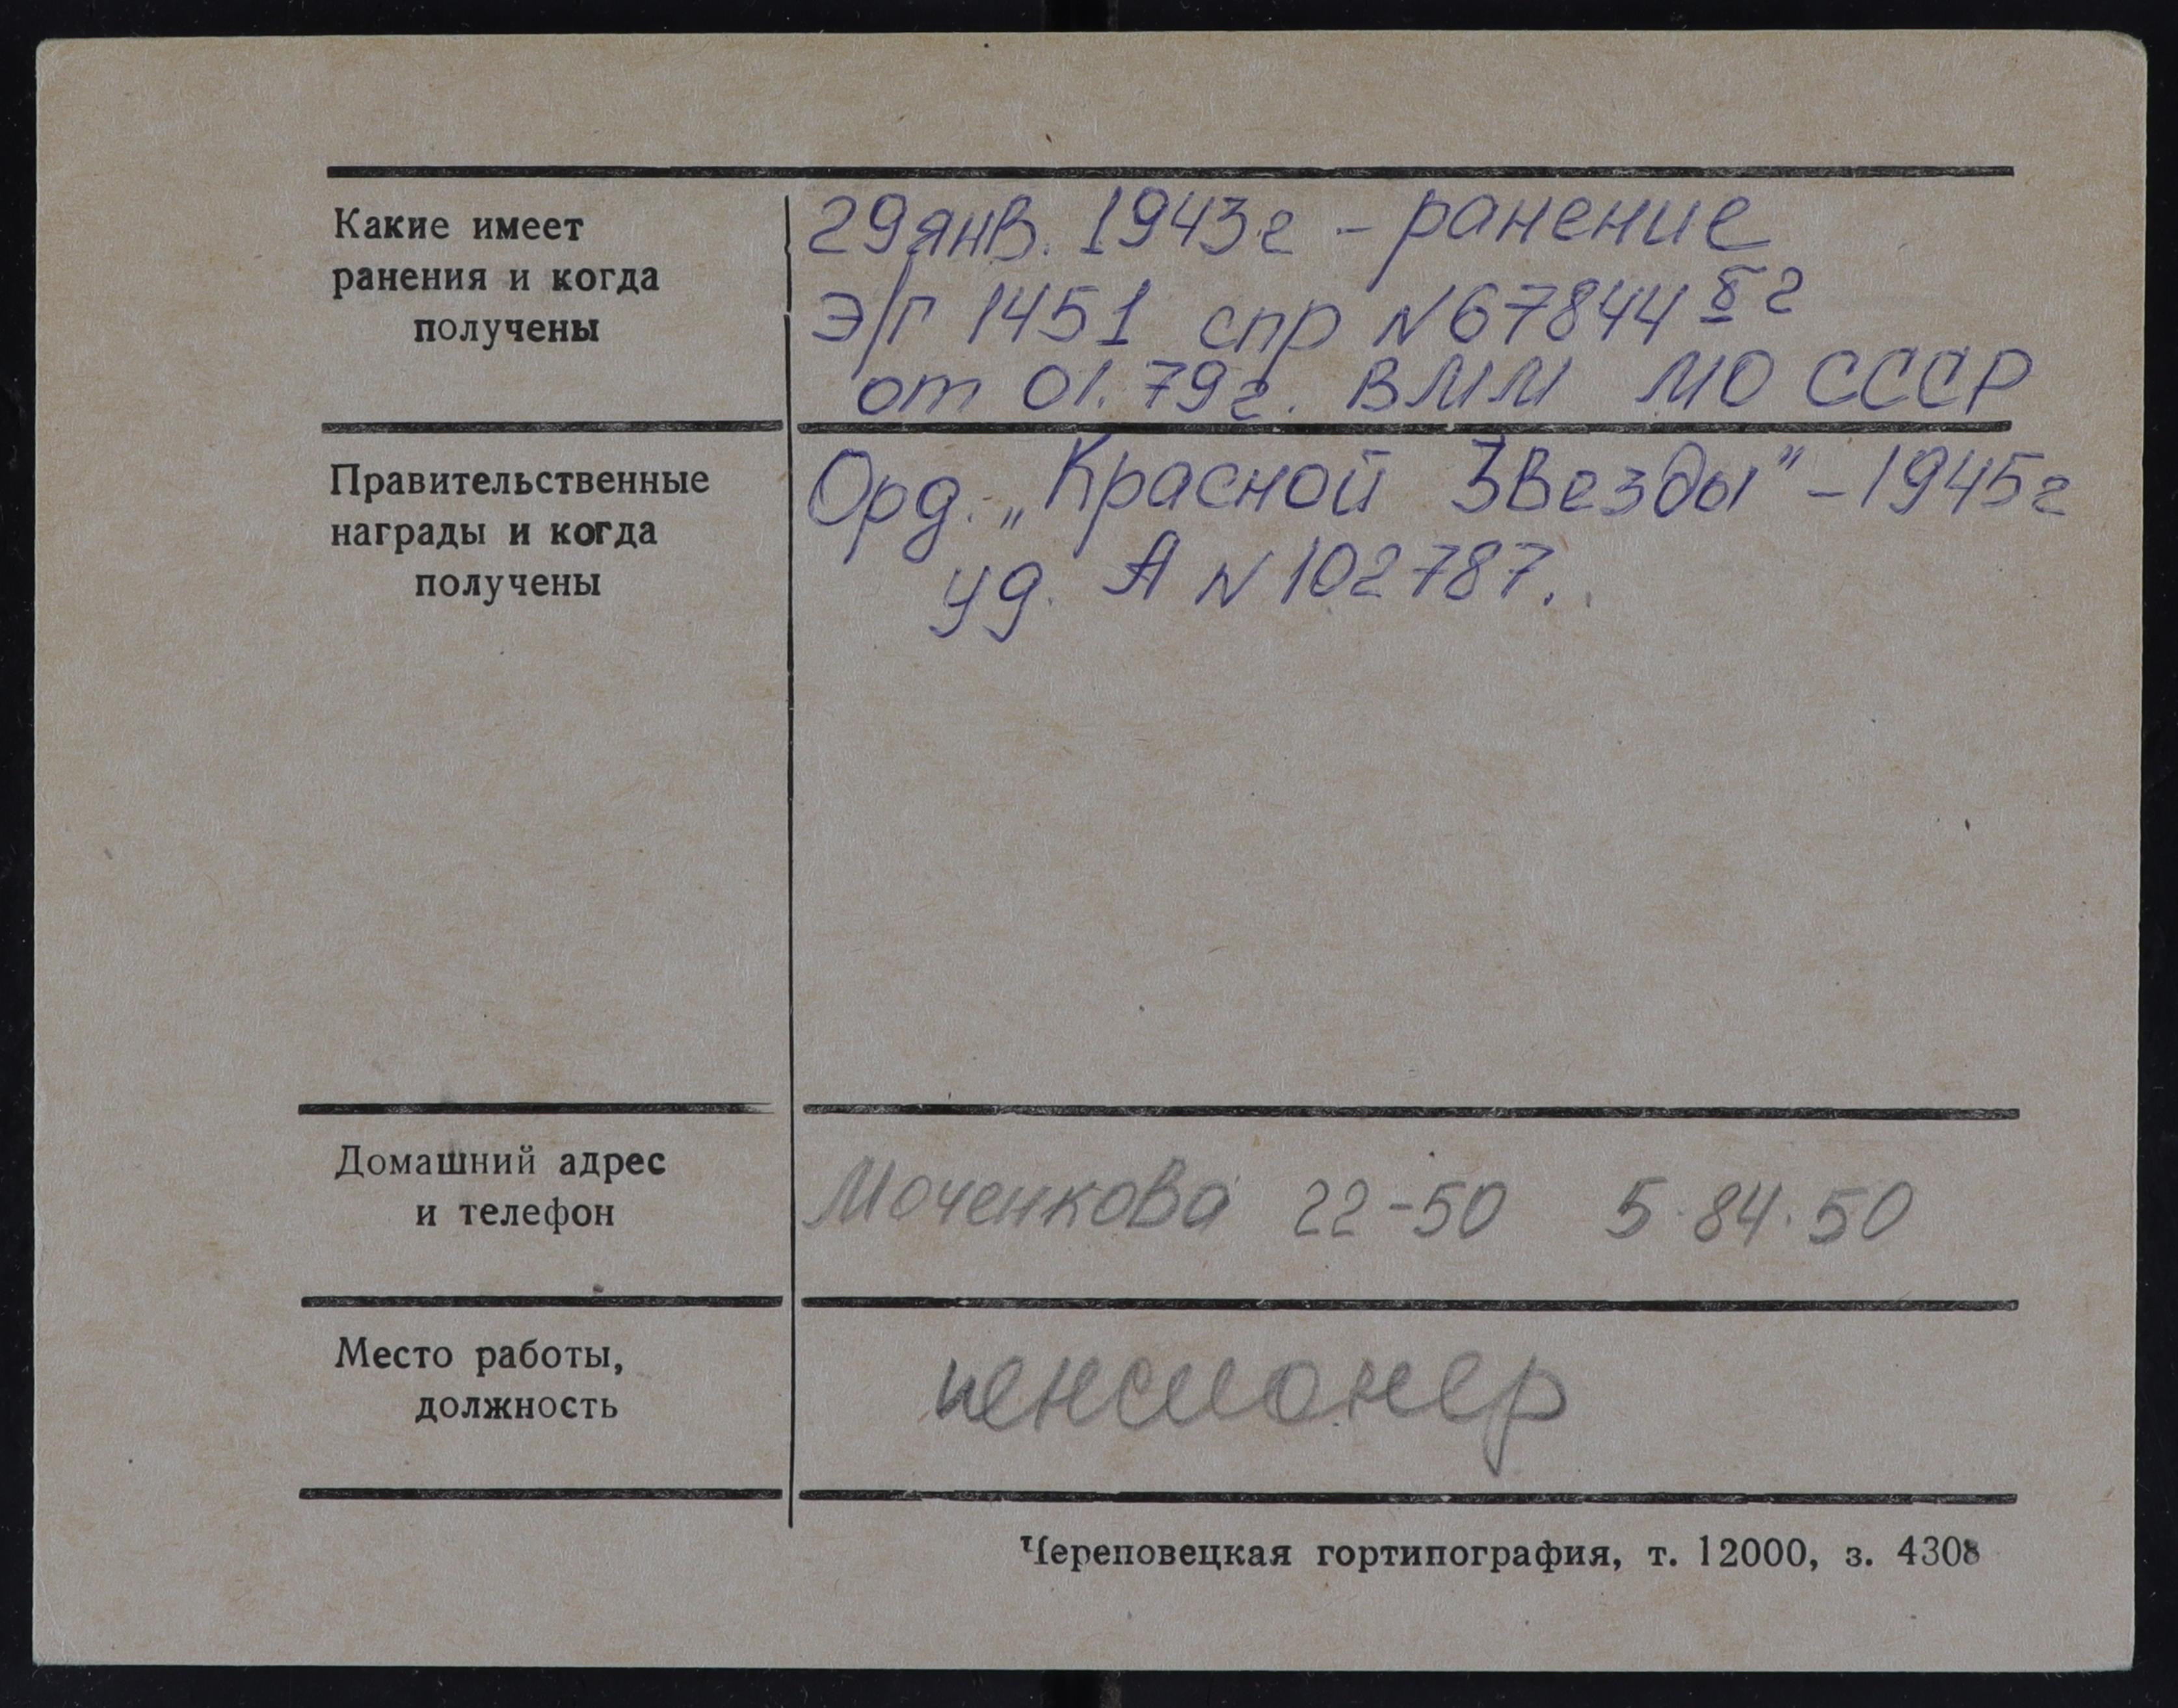 Какие имеет
ранения и когда
получены
29 янв. 1943 г - ранение
Э/Г 1451 спр № 67844
от 01.79 г. ВММ МО СССР
Правительственные
награды и когда
получены
Орд. „Красной Звезды" - 1945 г
уд. А № 102787.
Домашний адрес
и телефон
Моченкова 22-50 5.84.50
Место работы,
должность
пенсионер
Череповецкая гортипография, т. 12000, з. 4308